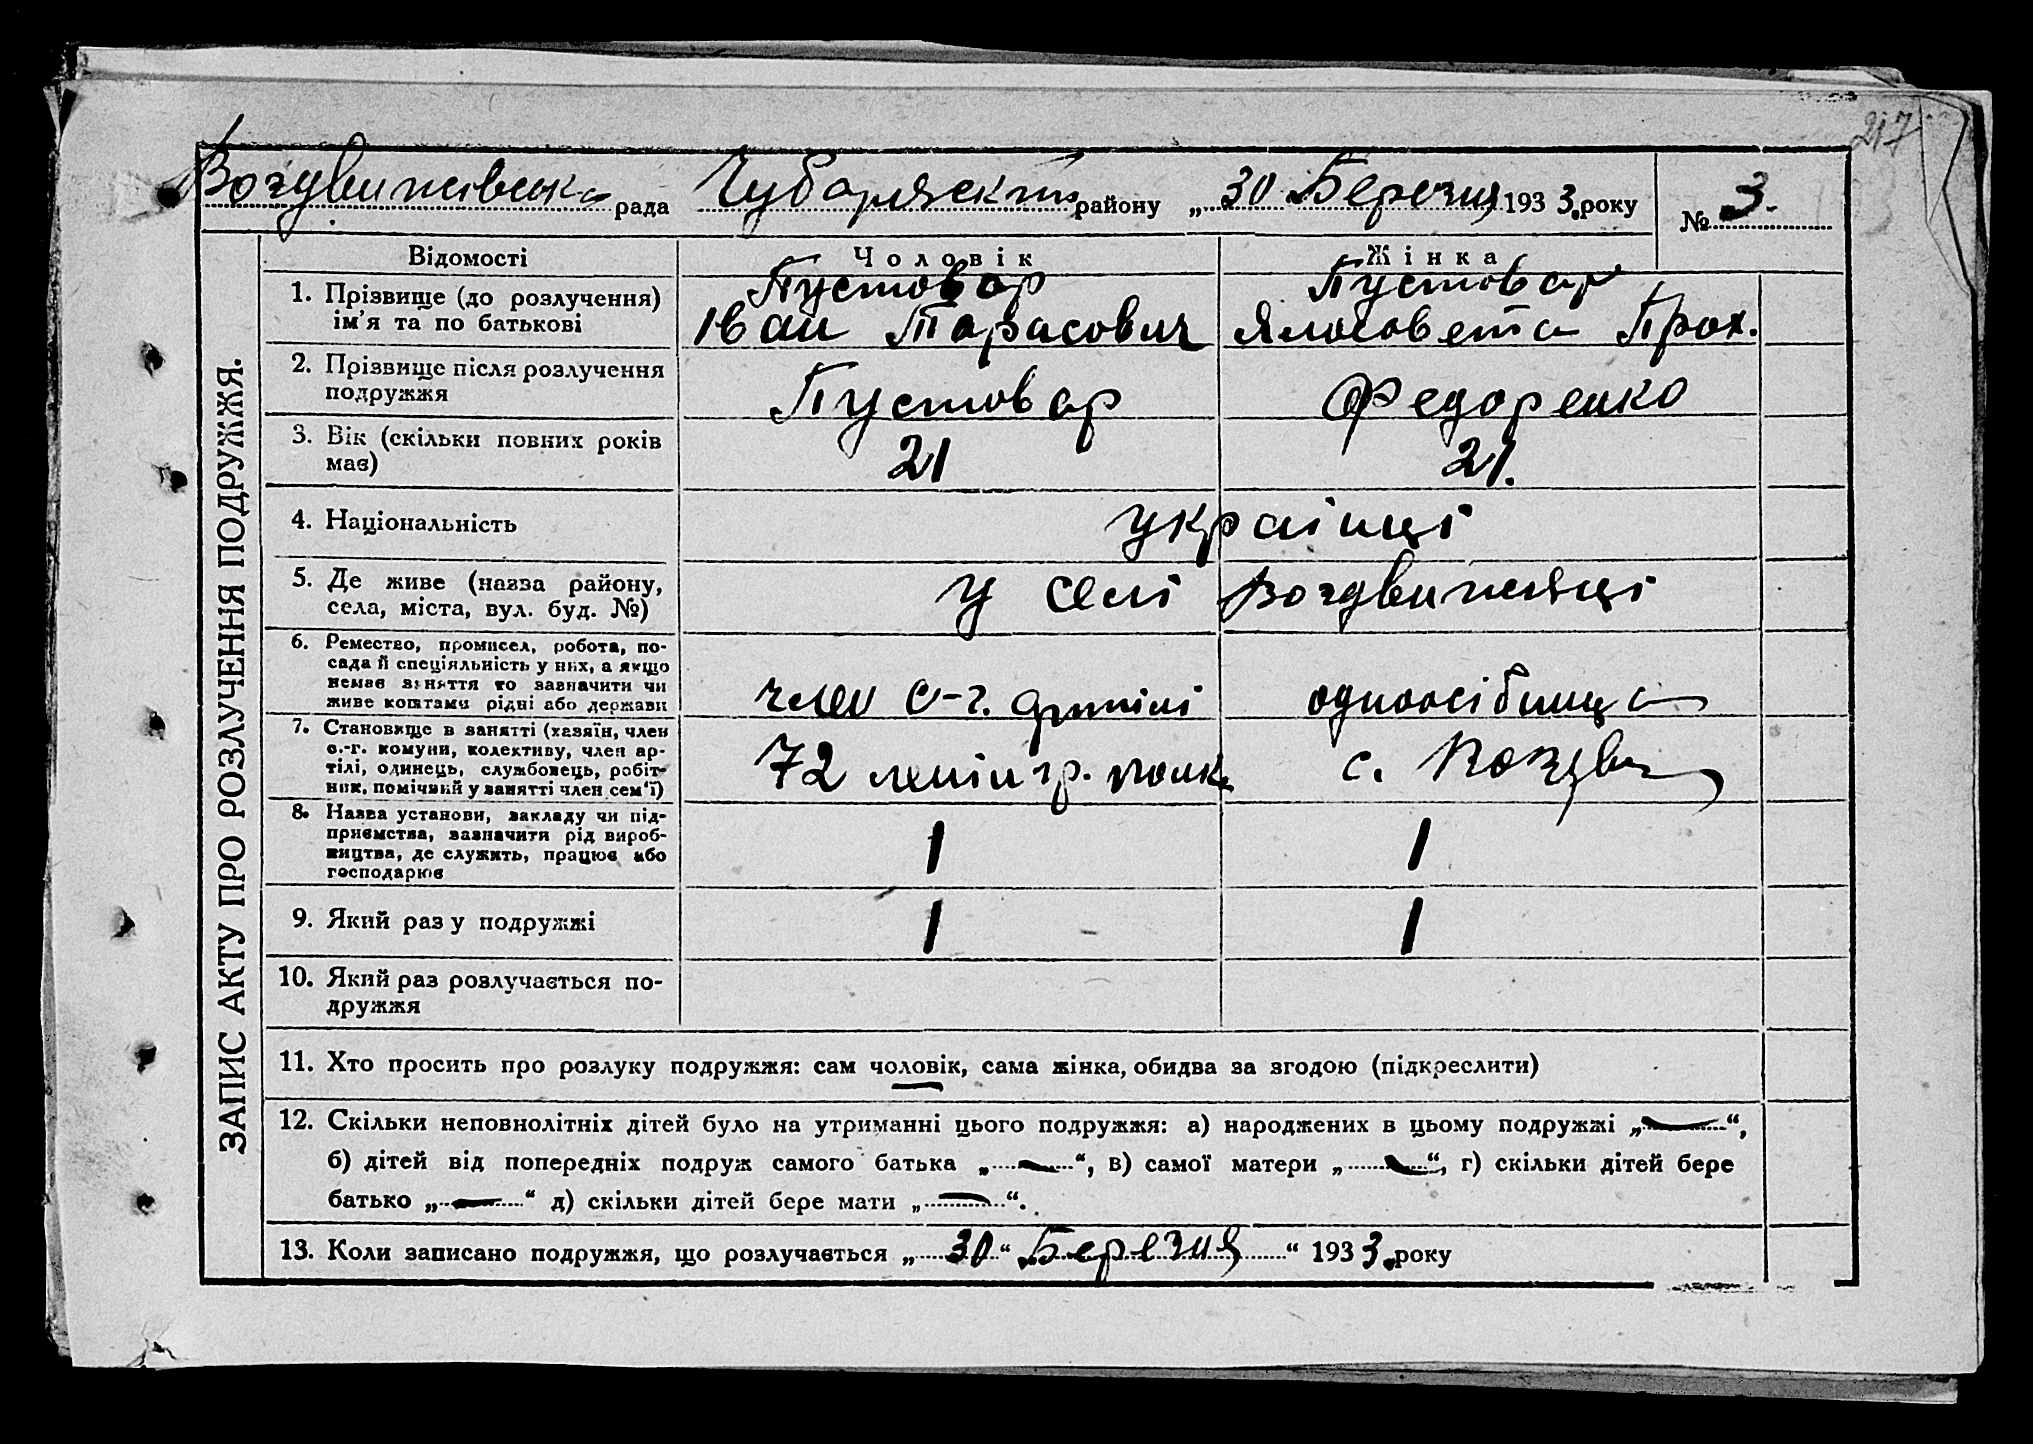 217
Воздвиживська рада Чубарівського району „30 Березня 1933.року
№ 3.
ЗАПИС АКТУ ПРО РОЗЛУЧЕННЯ ПОДРУЖЖЯ.
Відомості Чоловік Жінка
1. Прізвище (до розлучення) Пустовар Пустовар
ім’я та по батькові Іван Тарасович Ялосовета Прох.
2. Прізвище після розлучення
подружжя Пустовар Федоренко
3. Вік (скільки повних років
має) 21 21.
4. Національність українці
5. Де живе (назва району, у селі Воздвиживці
села, міста, вул. буд. №)
6. Ремество, промисел, робота, по-
сада й спеціяльність у них, а якщо
немає заняття то зазначити чи
живе коштами рідні або держави член с-г. артілі одноосібниця
7. Становище в занятті (хазяїн, член
с.-г. комуни, колективу, член ар-
тілі, одинець, службовець, робіт- 72 ленінгр. полк с.
ник, помічний у занятті член сем’ї)
8. Назва установи, закладу чи під-
приємства, зазначити рід вироб-
ництва, де служить, працює або 1 1
господарює
9. Який раз у подружжі 1 1
10. Який раз розлучається по-
дружжя
11. Хто просить про розлуку подружжя: сам чоловік, сама жінка, обидва за згодою (підкреслити)
12. Скільки неповнолітніх дітей було на утриманні цього подружжя: а) народжених в цьому подружжі „—“,
б) дітей від попередніх подруж самого батька „—“, в) самої матери „—“, г) скільки дітей бере
батько „—“ д) скільки дітей бере мати „—“.
13. Коли записано подружжя, що розлучається „30“ Березня “ 1933.року